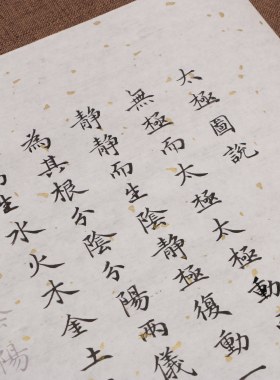 太極圖說
無極而太極太極動
静静而生陰静極復動一
為其根分陰分陽兩儀
生水火木金土
陽